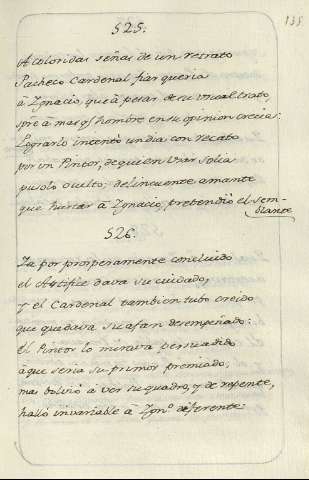 135
525.
A coloridas señas de un retrato
Pacheco Cardenal fiar queria
à Ygnacio, que à pesar de su
spre à mas q̃ hombre en su opinion crecia:
Lograrlo intentò un dia con recato
por un Pintor, de quien usar solia
pusolo oculto; delincuente amante
que hurtar à Ygnacio, pretendiò el sem-
blante
526.
Ya por prosperamente concluido
el Artifice dava su cuidado,
y el Cardenal tambien tubo creido
que quedava su afan desempeñado:
el Pintor lo mirava persuadido
à que seria su primor premiado;
mas bolviò à ver su quadro, y de repente,
hallò invariable à Ygn.º diferente.